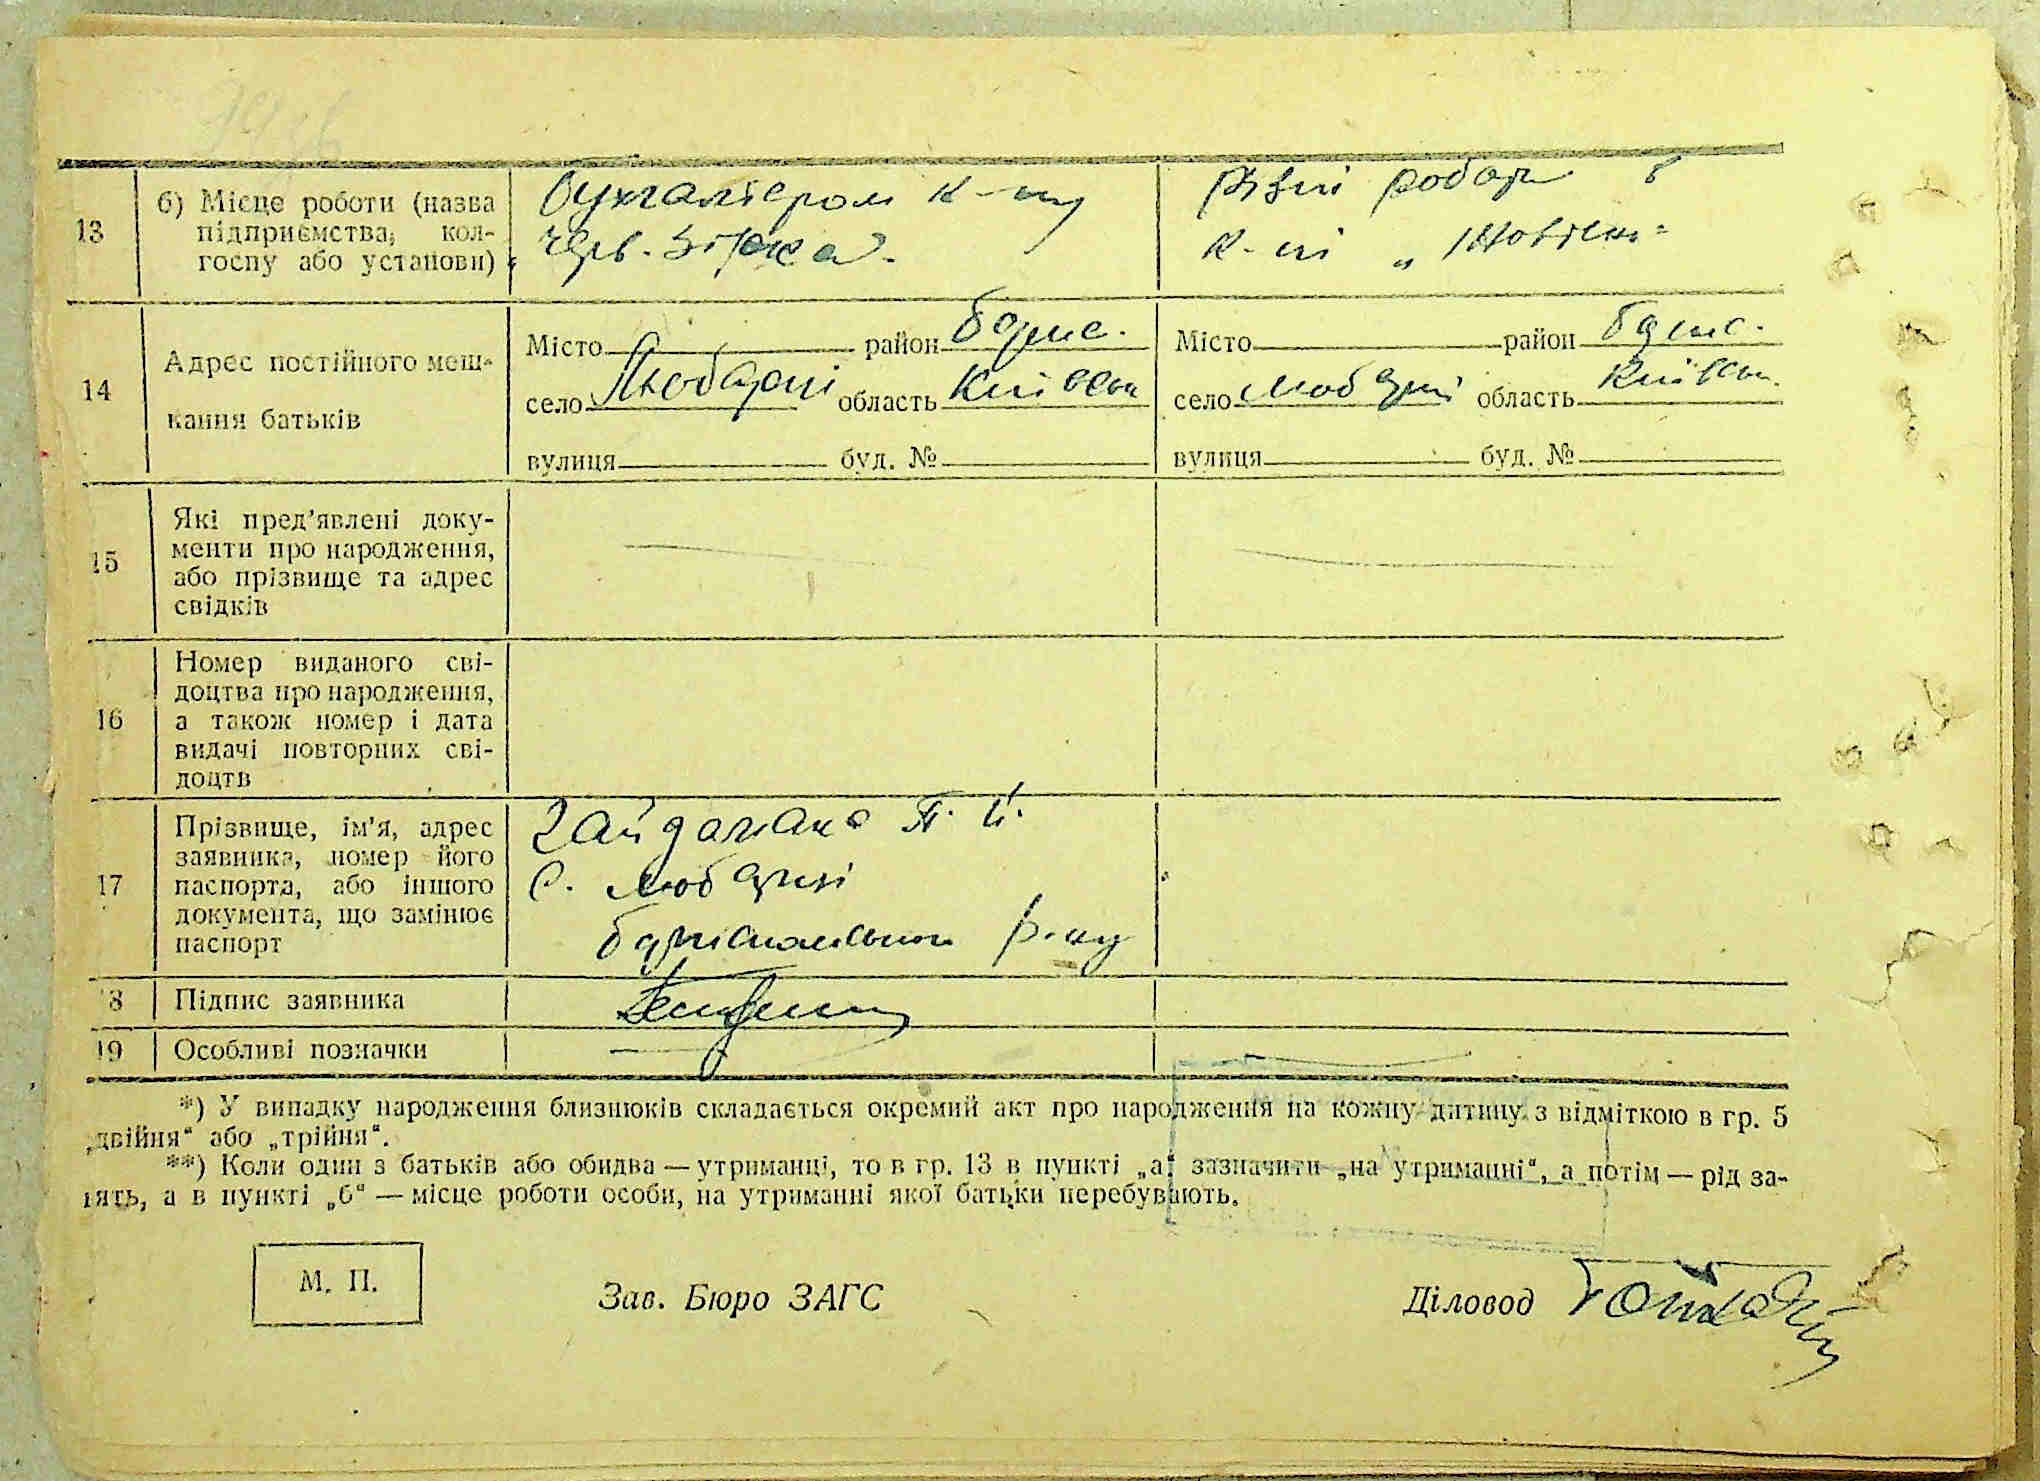 13
б) Місце роботи (назва підприємства, колгоспу або установи)
Бухгалтером к-пу
Черв. Зірка.
Різні роботи в
к-пі „Жовтень"
14
Адрес постійного мешкання батьків
Місто район Борис.
село Любарці область Київськ
вулиця буд. №
Місто район Борис.
село Любарці область Київськ.
вулиця буд. №
15
Які пред'явлені документи про народження, або прізвище та адрес свідків
16
Номер виданого свідоцтва про народження, а також номер і дата видачі повторних свідоцтв
17
Прізвище, ім'я, адрес заявника, номер його паспорта, або іншого документа, що замінює паспорт
Гайдамака П. И.
с. Любарці
Бориспольськ р-ну
18 Підпис заявника
19 Особливі позначки
*) У випадку народження близнюків складається окремий акт про народження на кожну дитину з відміткою в гр. 5
„двійня" або „трійня".
**) Коли один з батьків або обидва — утриманці, то в гр. 13 в пункті „а" зазначити „на утриманні", а потім — рід за-
нять, а в пункті „б" — місце роботи особи, на утриманні якої батьки перебувають.
М. П.
Зав. Бюро ЗАГС
Діловод